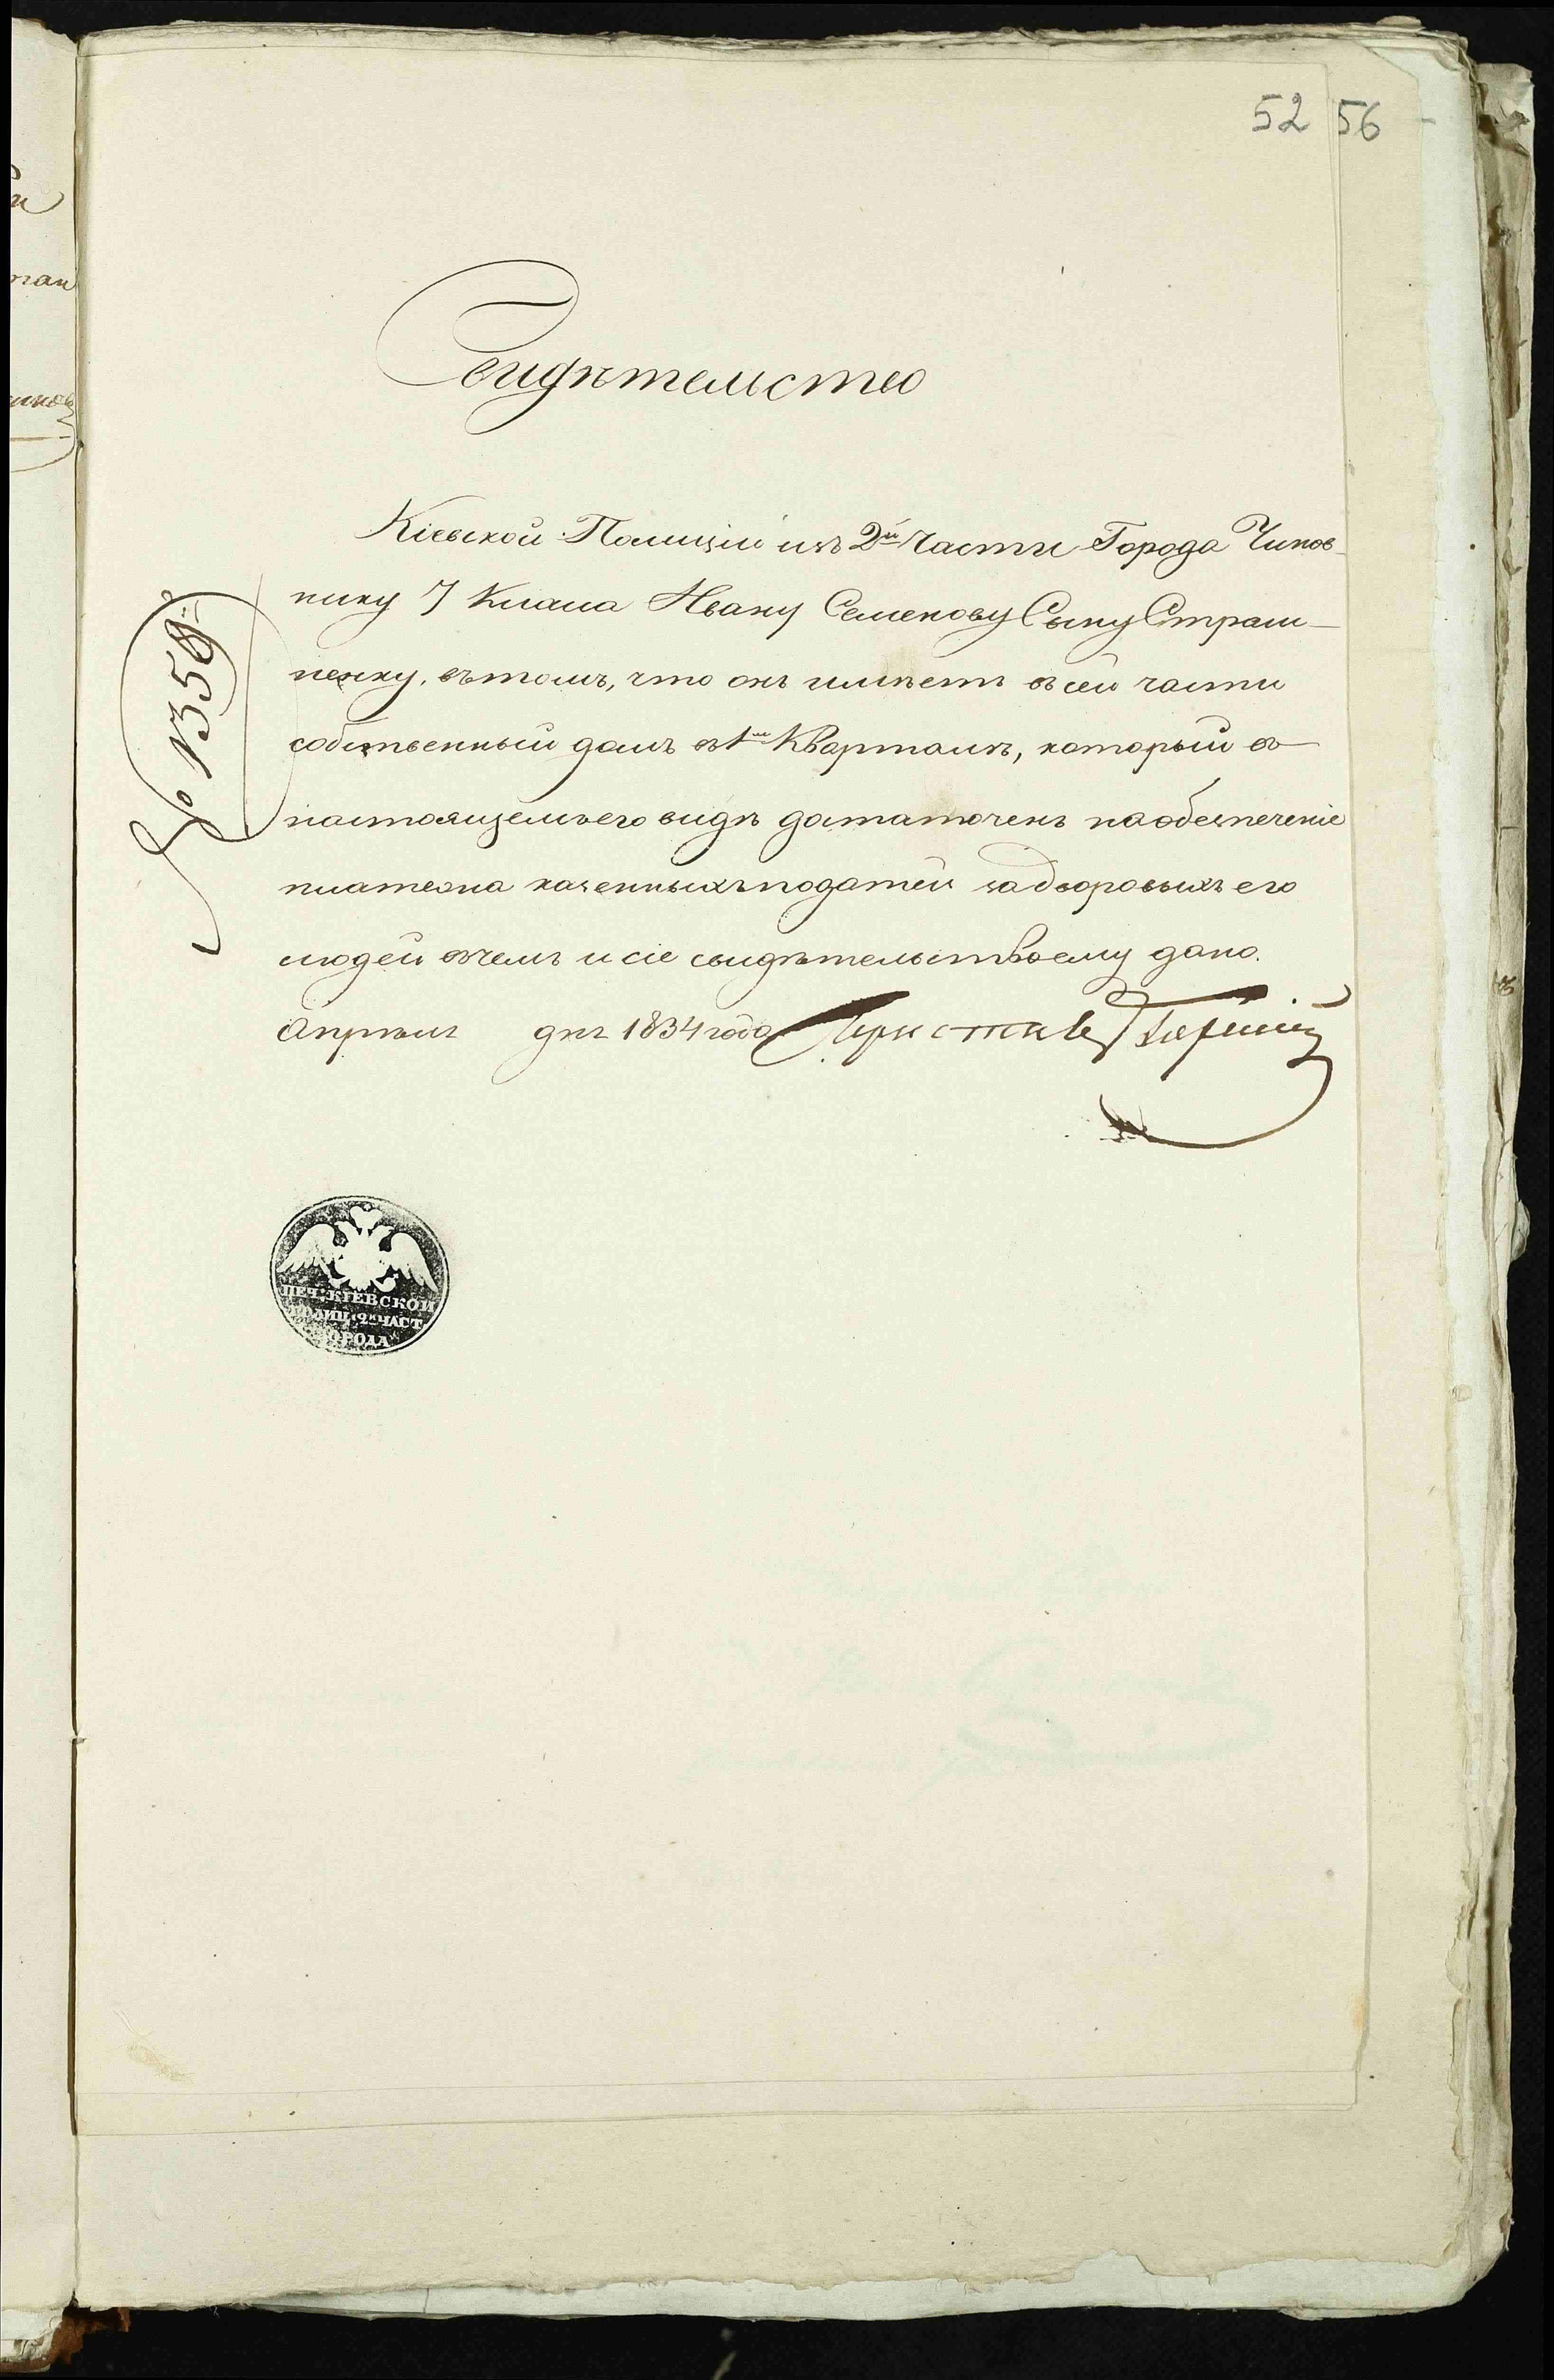 52 56
Свидѣтельство
Кіевской Полиціи изъ 2й Части Города Чинов-
нику 7 Класа Ивану Семенову Сыну Страш-
ненку, въ томъ, что онъ имѣетъ въ сей части
собственный домъ въ 1м Кварталѣ, который въ
настоящемъ его видѣ достаточенъ на обезпеченіе
платежа казенныхъ податей за дворовыхъ его
людей въ чемъ и сіе свидѣтельство ему дано.
Апрѣля дня 1834 года
№ 1350
ПЕЧ: КІЕВСКОЙ
ПОЛИЦ: 2й ЧАСТ
ГОРОДА